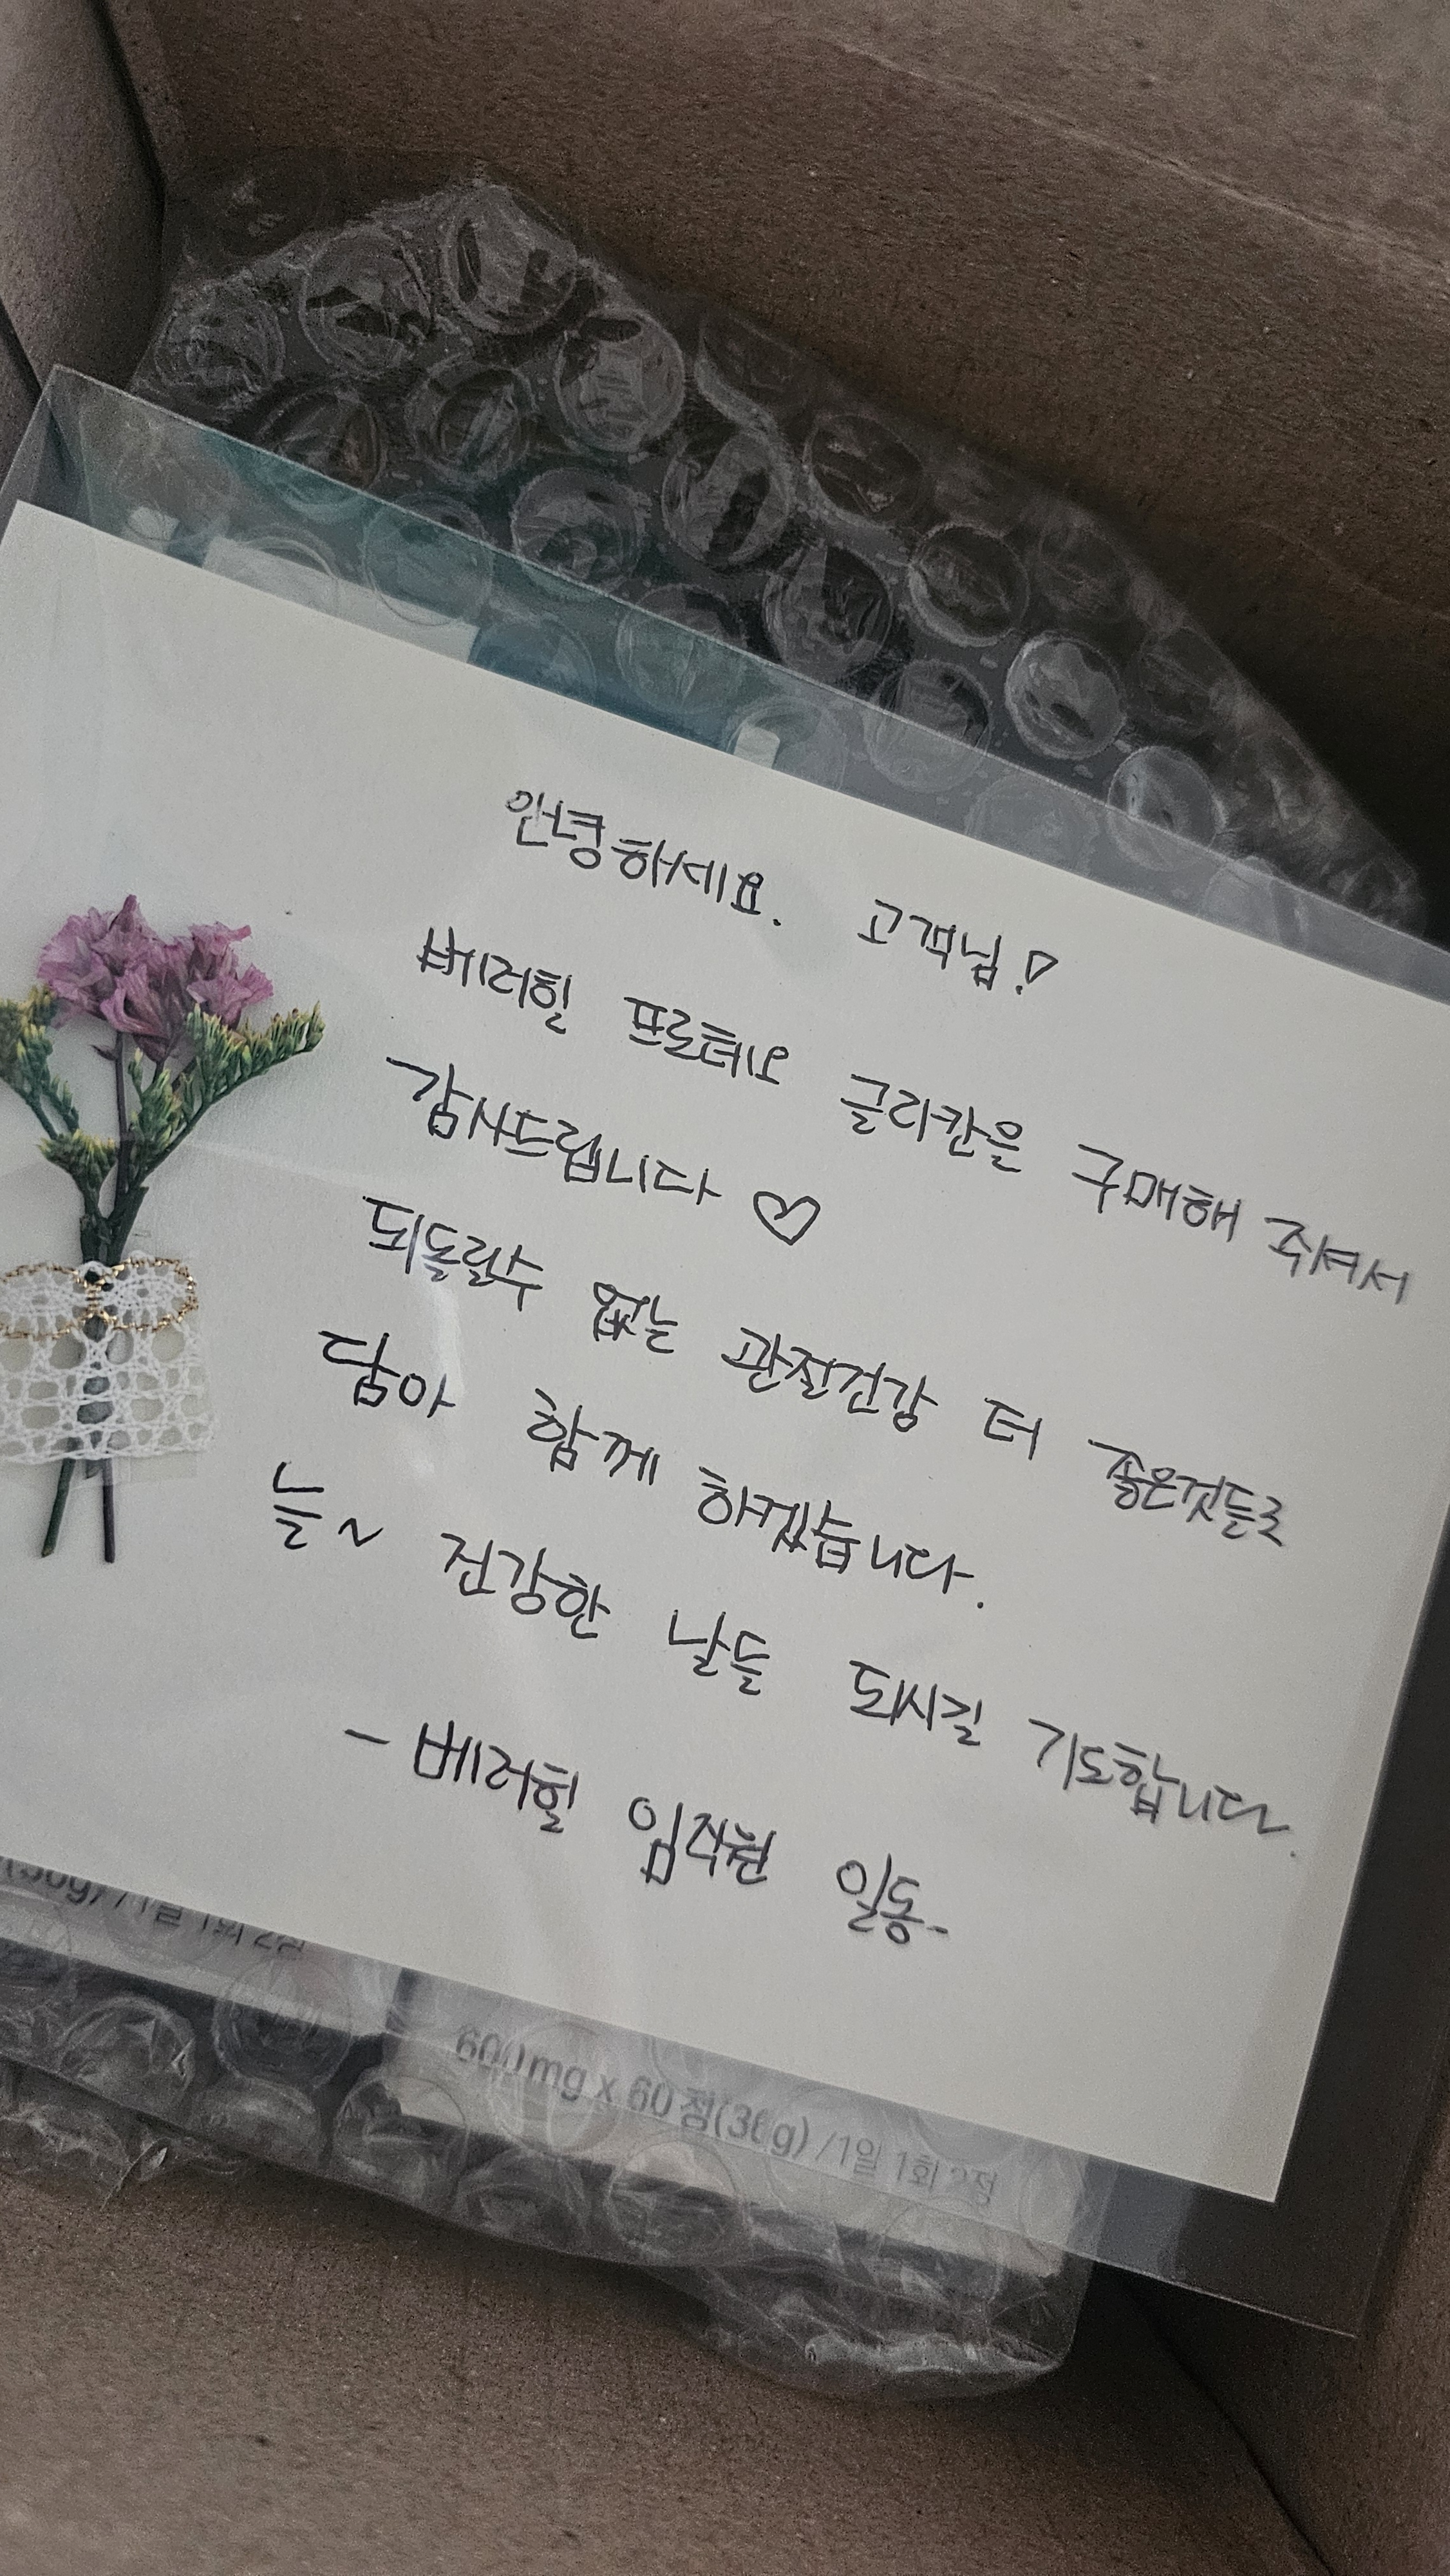 안녕하세요. 고객님!
베러힐 프로테오 글리칸을 구매해 주셔서
감사드립니다♡
되돌릴수 없는 관절건강 더 좋은것들로
담아 함께 하겠습니다.
늘~ 건강한 날들 되시길 기도합니다.
- 베러힐 임직원 일동-
/1일 1회 2정
600mg x 60정(36g) /1일 1회 2정